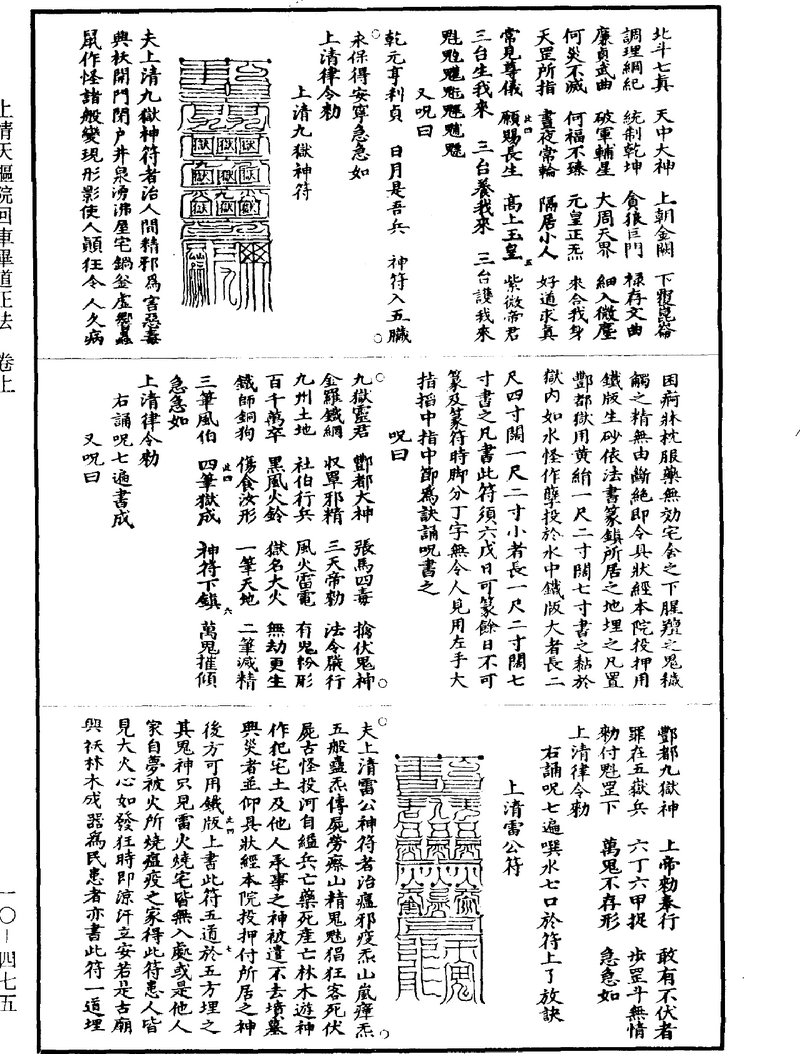 北斗七真　天中大神　上朝金闕　下覆崑崙
調理綱紀　統制乾坤　貪狼巨門　祿存文曲
廉貞武曲　破軍輔星　大周天界　細入微塵
何災不滅　何福不臻　元皇正炁　來合我身
天罡所指　晝夜常輪　隔居小人　好道求真
常見尊儀　願賜長生　高上玉皇　紫微帝君
三台生我來　三台養我來　三台護我來
魁𩲃魓魒
又呪曰
乾元亨利貞　日月是吾兵　神符入五臟
永保得安寧急急如
上清律令勅
上清九獄神符
夫上清九獄神符者治人間精邪為害惡毒
興祅開門閉户井泉湧沸屋宅鍋釜虛響蟲
鼠作怪諸般變現形影使人顛狂令人久病
困痾牀枕服藥無効宅舍之下腥羶之鬼穢
觸之精無由斷絕即令具狀經本院投押用
鐵版生砂依法書篆鎮所居之地埋之凡置
酆都獄用黄絹一尺二寸闊七寸書之黏於
獄内如水怪作孽投於水中鐵版大者長二
尺四寸闊一尺二寸小者長一尺二寸闊七
寸書之凡書此符須六戊日可篆餘日不可
篆及篆符時脚分丁字無令人見用左手大
指搯中指中節為訣誦呪書之
呪曰
九獄靈君　酆都大神　張馬四毒　擒伏鬼神
金羅鐵網　収罩邪精　三天帝勅　法令嚴行
九州土地　社伯行兵　風火雷電　有鬼粉形
百千萬卒　黑風火鈴　獄名大火　無劫更生
鐵師銅狗　傷食汝形　一筆天地　二筆滅精
三筆風伯　四筆獄成　神符下鎮　萬鬼摧傾
急急如
上清律令勅
右誦呪七遍書成
又呪曰
酆都九獄神　上帝勅奉行　敢有不伏者
罪在五獄兵　六丁六甲捉　步罡斗無情
勅付魁罡下　萬鬼不存形　急急如
上清律令勅
右誦呪七遍噀水七口於符上了放訣
上清雷公符
夫上清雷公神符者治瘟邪疫炁山嵐瘴炁
五般蠱炁傳屍勞瘵山精鬼魅猖狂客死伏
屍古怪投河自縊兵亡藥死產亡林木遊神
作犯宅土及他人承事之神被遣不去墳墓
興災者並仰具狀經本院投押付所居之神
後方可用鐵版上書此符五道於五方埋之
其鬼神只見雷火燒宅皆無入處或是他人
家自夢被火所燒瘟疫之家得此符患人皆
見大火心如發狂時即涼汗立安若是古廟
興祅林木成器為民患者亦書此符一道埋
上清天樞院回車畢道正法　卷上
一〇—四七五